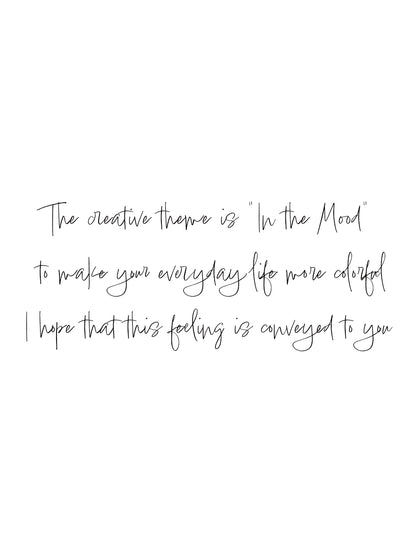 The creative theme is "In the Mood"
to make your everyday life more colorful
I hope that this feeling is conveyed to you